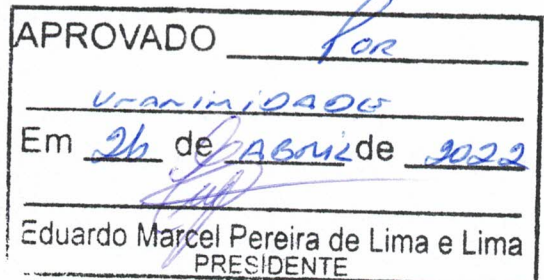 APROVADO Por
unanimidade
Em 26 de Abril de 2022
Eduardo Marcel Pereira de Lima e Lima
PRESIDENTE